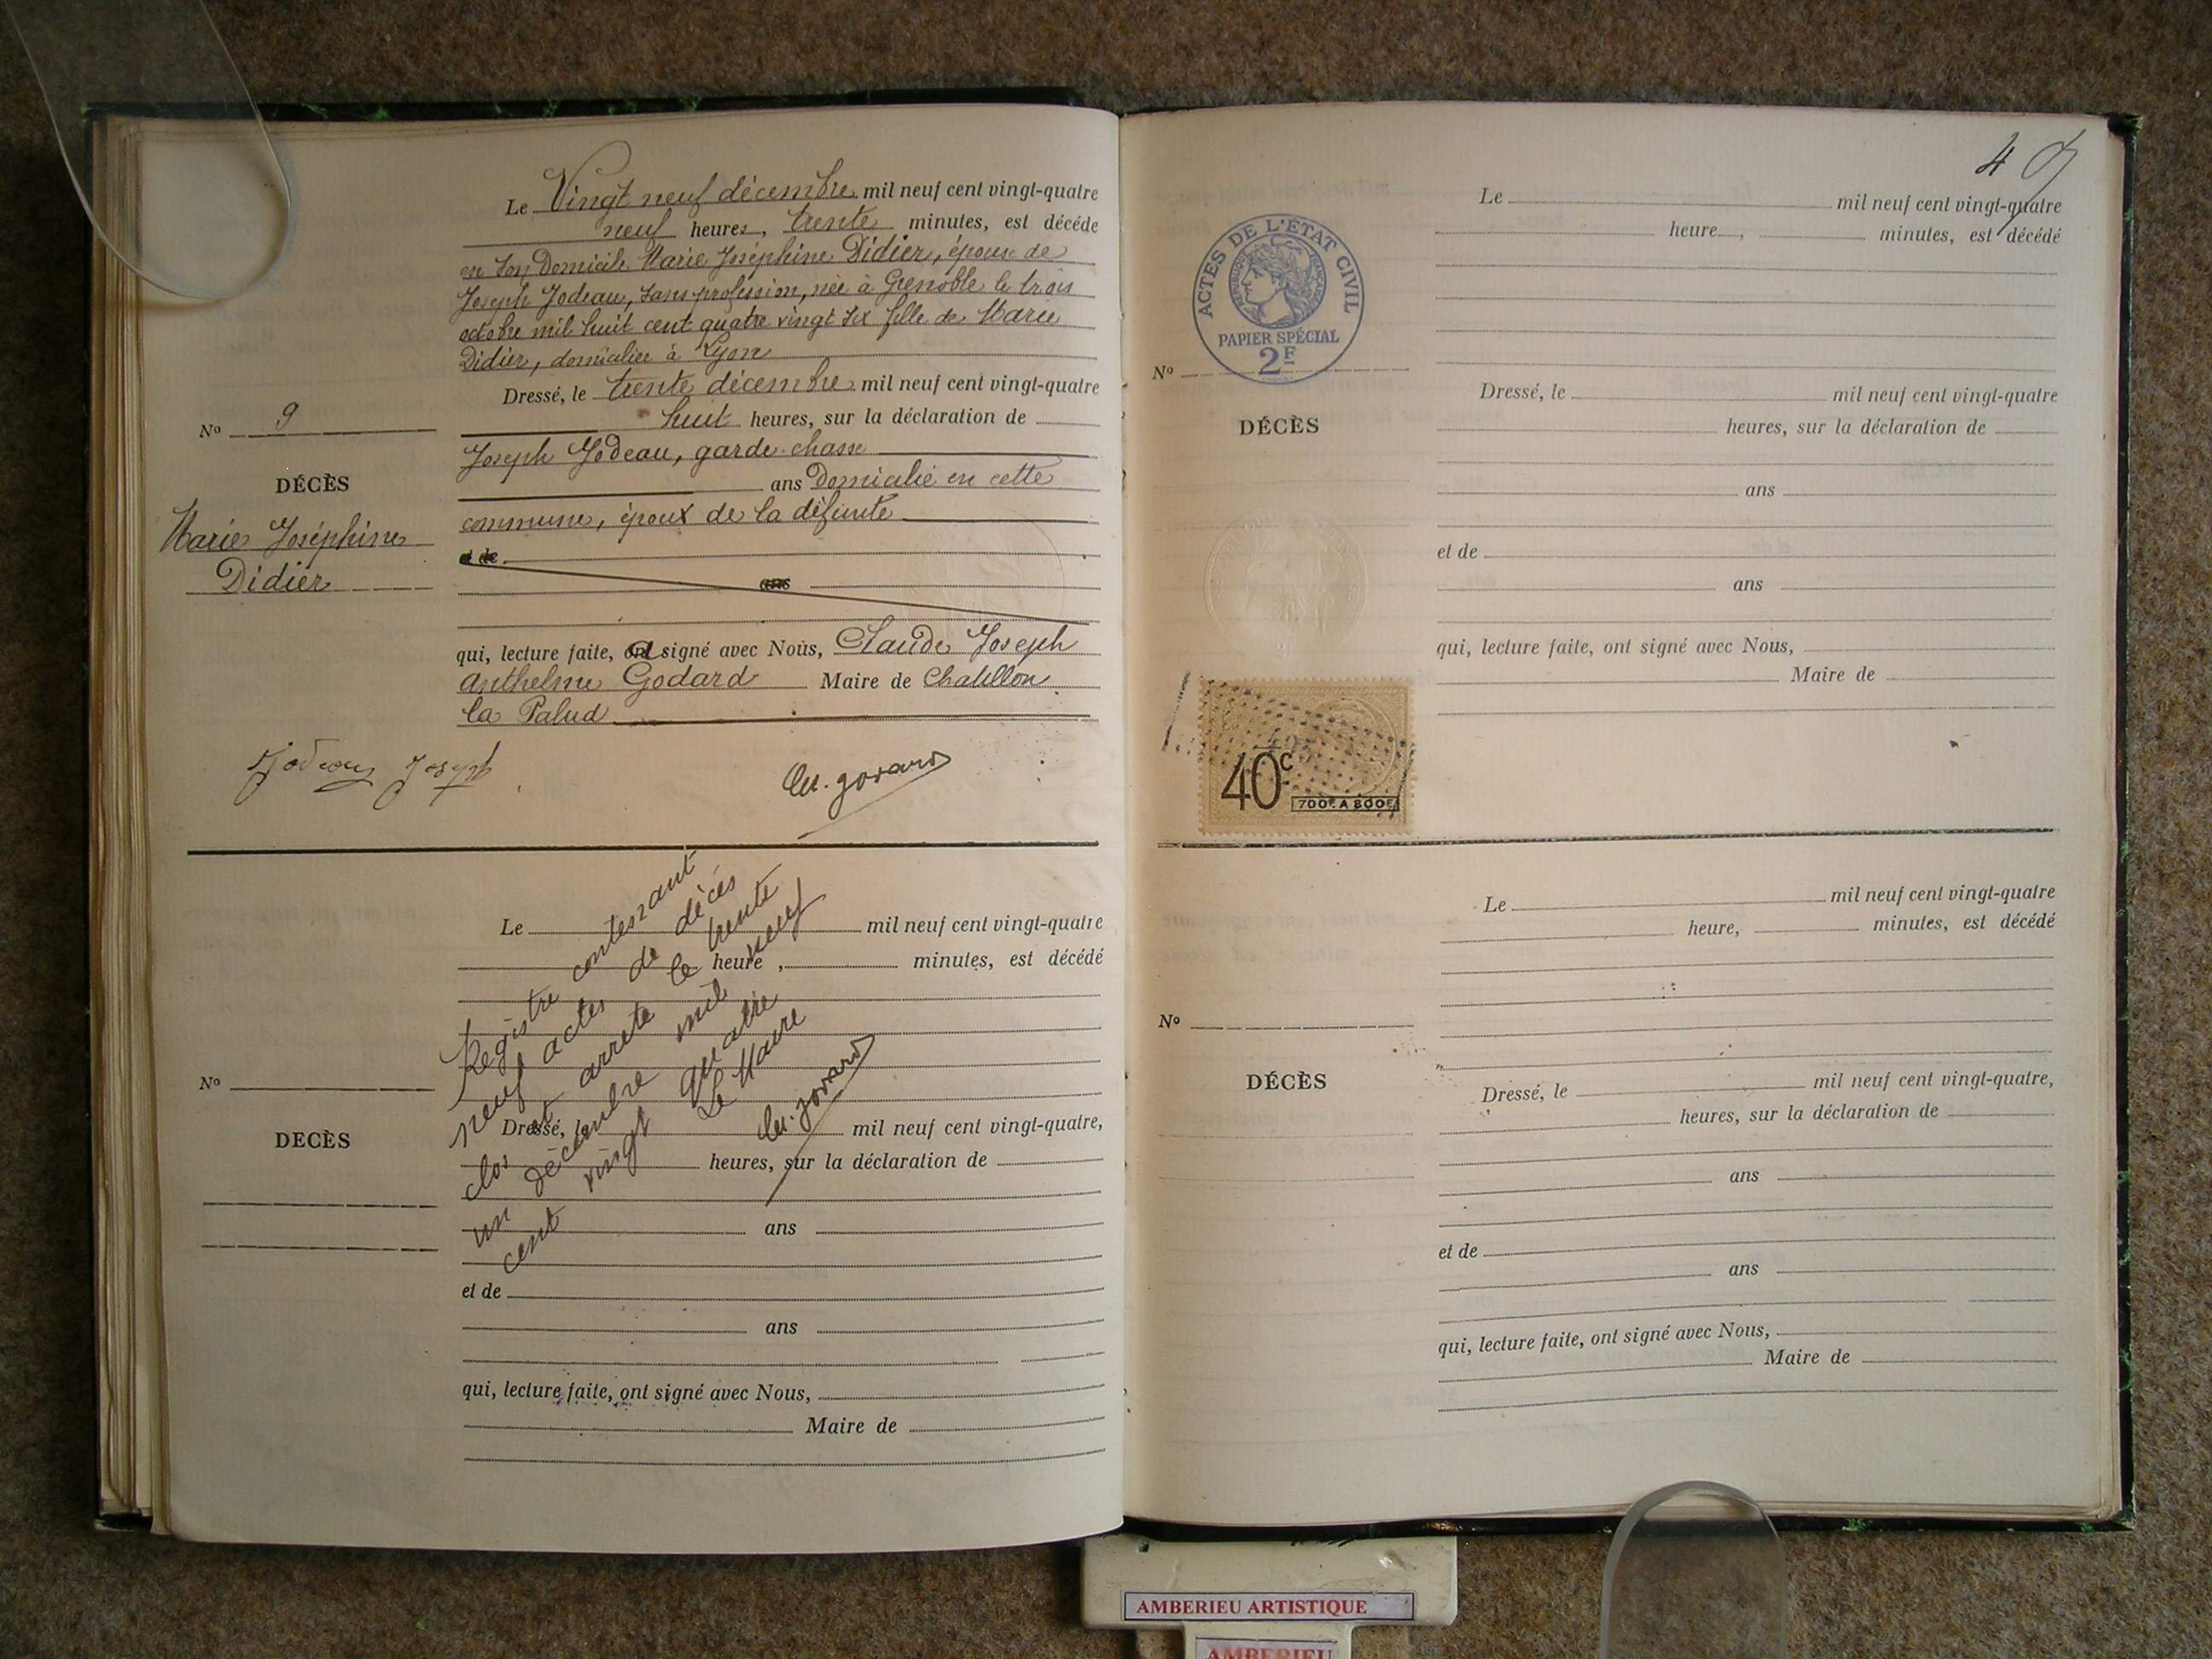 Le Vingt neuf décembre mil neuf cent vingt-quatre
neuf heures, trente minutes, est décédé
en son Domicile Marie Joséphine Didier, épouse de
Joseph Jodeau, sans profession, née à Grenoble le trois
octobre mil huit cent quatre vingt six fille de Marie
Didier, domiciliée à Lyon
Dressé, le trente décembre mil neuf cent vingt-quatre
huit heures, sur la déclaration de
Joseph Jodeau, garde-chasse
ans Domicilié en cette
commune, époux de la défunte
et de
ans
qui, lecture faite, a signé avec Nous, Claude Joseph
Anthelme Godard Maire de Chatillon
la Palud
Nº 9
DÉCÈS
Marie Joséphine
Didier
Jodeau Joseph
Godard
Le mil neuf cent vingt-quatre
heure, minutes, est décédé
Nº
DÉCÈS
Dressé, le mil neuf cent vingt-quatre,
heures, sur la déclaration de
ans
et de
ans
qui, lecture faite, ont signé avec Nous,
Maire de
Registre contenant
neuf actes de décès
clos et arrêté le trente
un décembre mil neuf
cent vingt quatre
Le Maire
Godard
4
Le mil neuf cent vingt-quatre
heure, minutes, est décédé
ACTES DE L'ÉTAT CIVIL
RÉPUBLIQUE FRANÇAISE
PAPIER SPÉCIAL
2F
Nº
DÉCÈS
Dressé, le mil neuf cent vingt-quatre
heures, sur la déclaration de
ans
et de
ans
qui, lecture faite, ont signé avec Nous,
Maire de
40c
700F. A 800F.
Le mil neuf cent vingt-quatre
heure, minutes, est décédé
Nº
DÉCÈS
Dressé, le mil neuf cent vingt-quatre,
heures, sur la déclaration de
ans
et de
ans
qui, lecture faite, ont signé avec Nous,
Maire de
AMBERIEU ARTISTIQUE
AMBERIEU